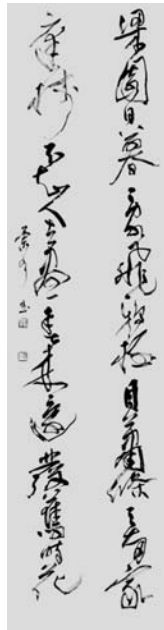 梁園日暮亂飛鴉極目蕭條三兩家
庭樹不知人去盡春來還發舊時花